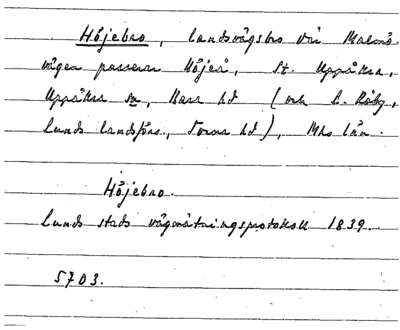 Höjebro, landsvägsbro där Malmö-
vägen passerar Höjeå, St. Uppåkra,
Uppåkra sn, Bara hd (och L. Råby,
Lunds landsförs., Torna hd), Mhs län.
Höjebro.
Lunds stads vägmätningsprotokoll 1839.
5703.